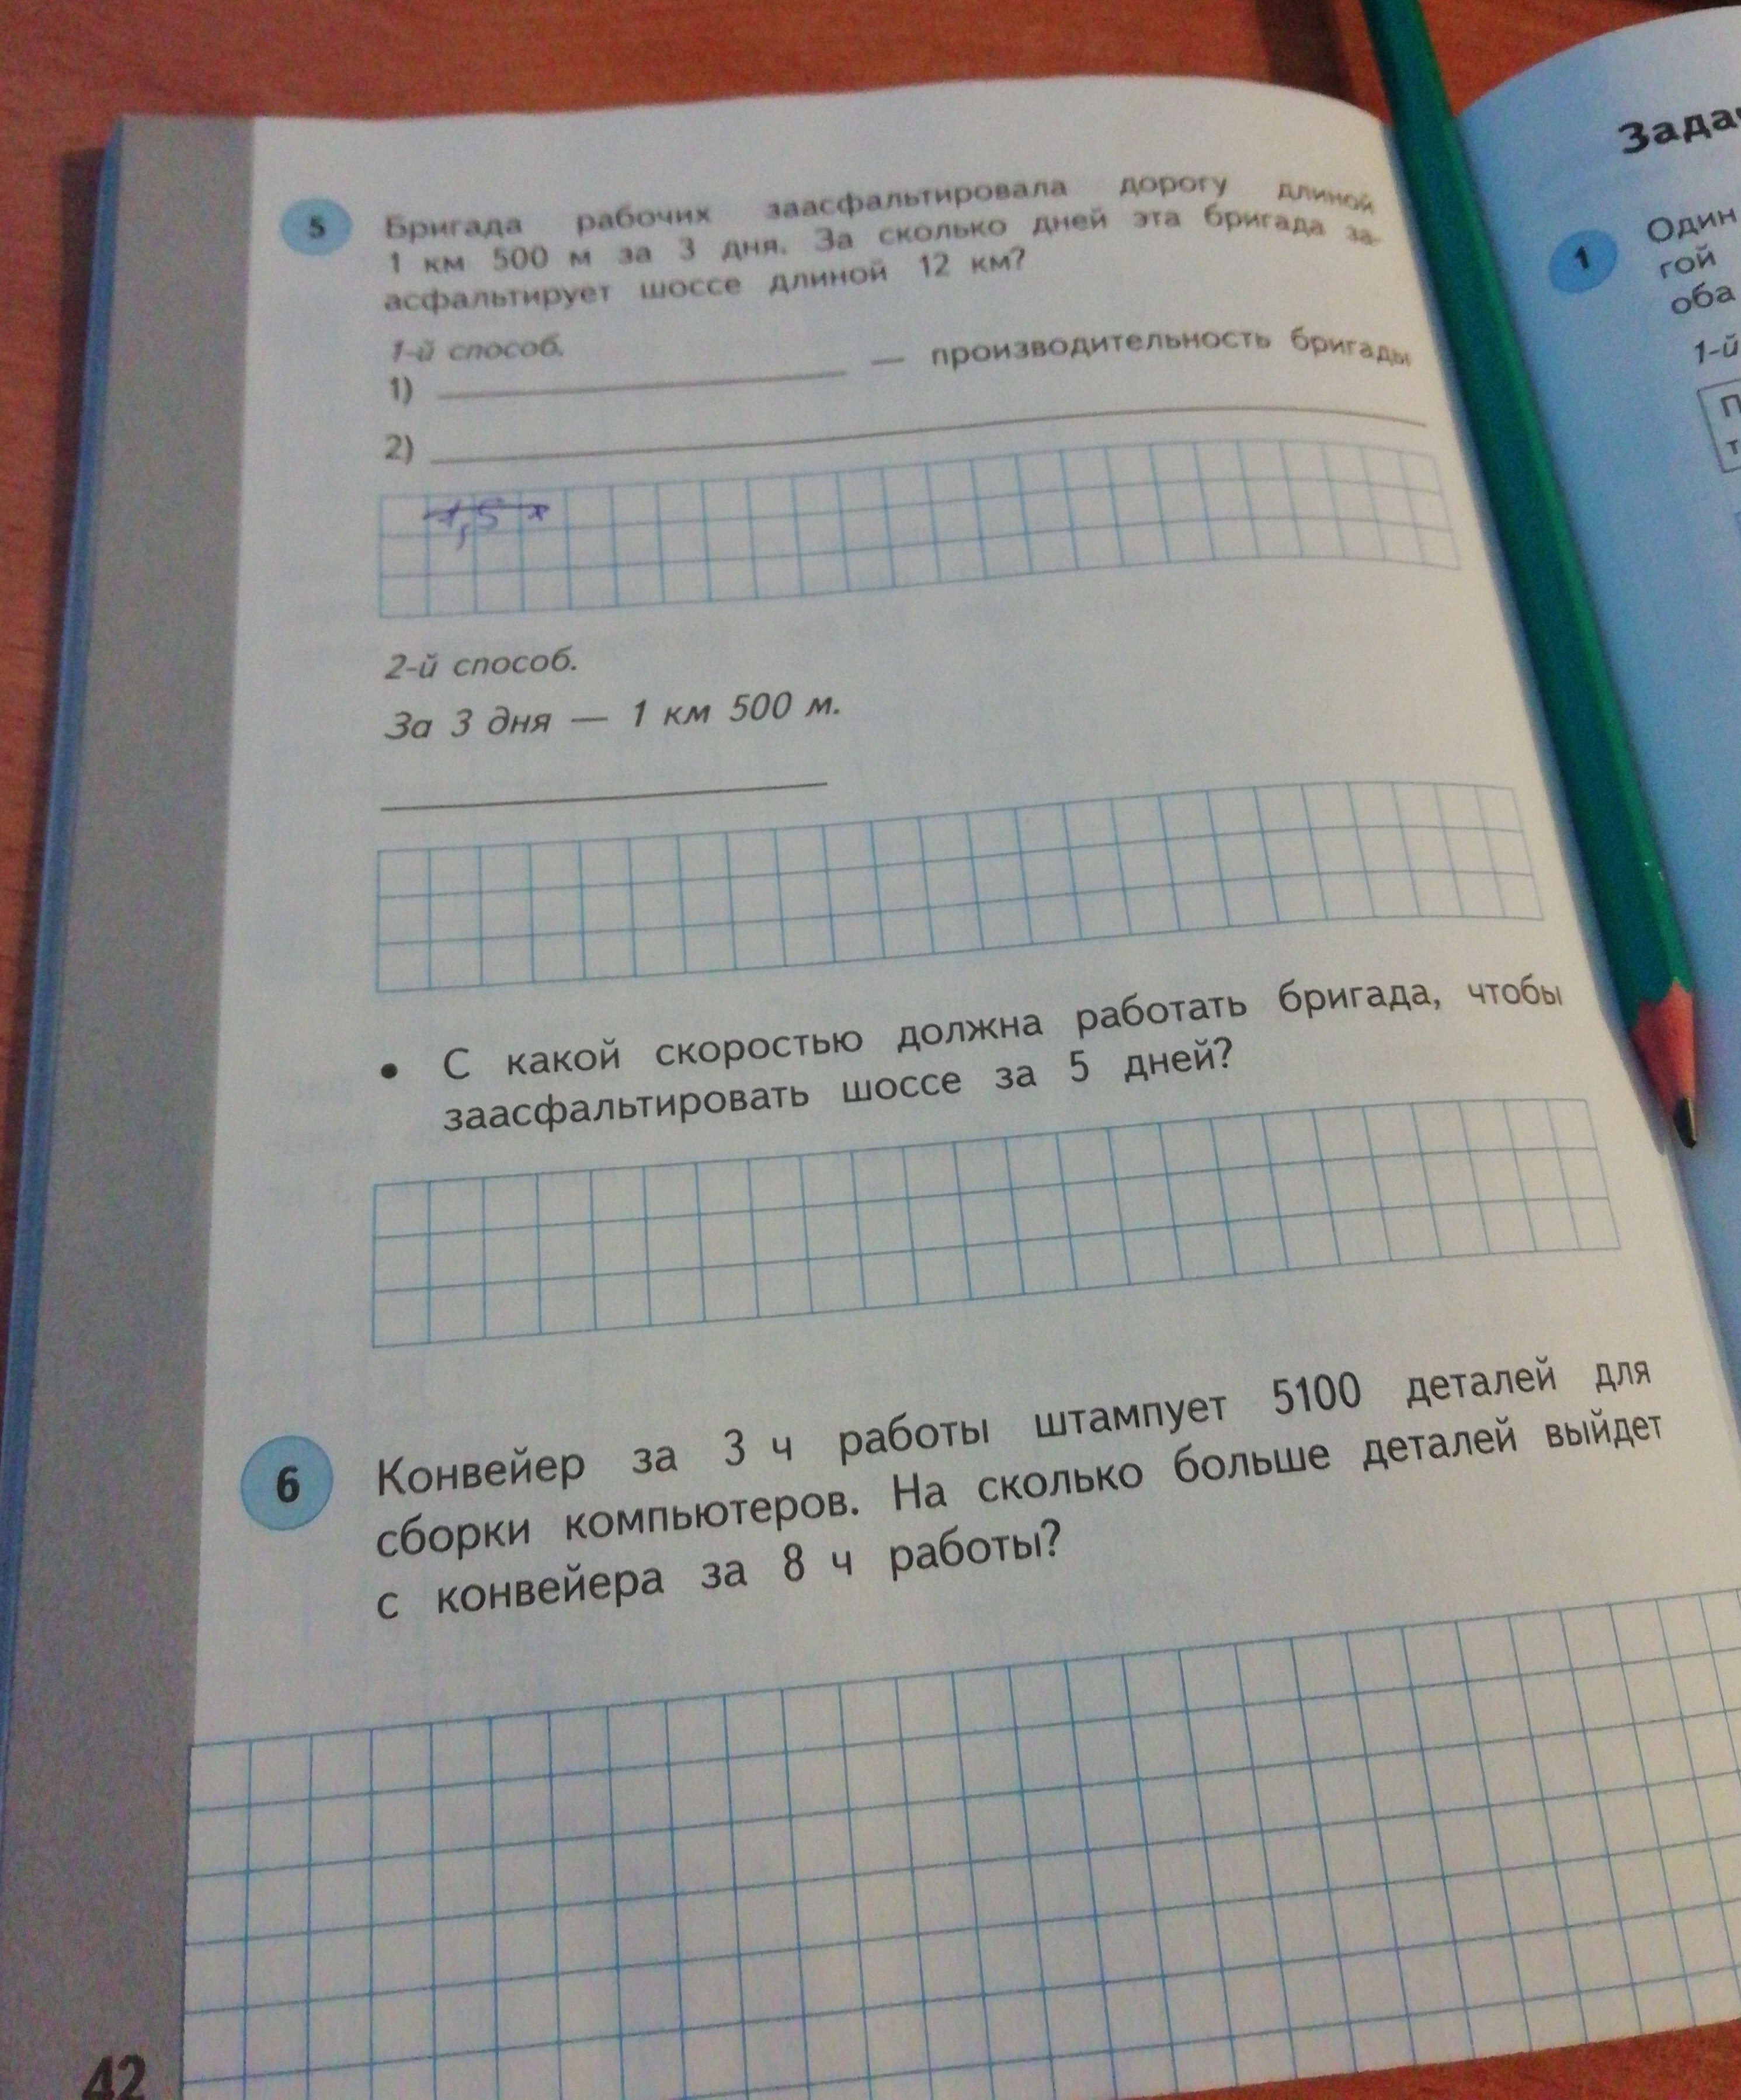 5 Бригада рабочих заасфальтировала дорогу длиной
1 км 500 м за 3 дня. За сколько дней эта бригада за-
асфальтирует шоссе длиной 12 км?
1-й способ.
1) — производительность бригады
2)
2-й способ.
За 3 дня — 1 км 500 м.
• С какой скоростью должна работать бригада, чтобы
заасфальтировать шоссе за 5 дней?
6 Конвейер за 3 ч работы штампует 5100 деталей для
сборки компьютеров. На сколько больше деталей выйдет
с конвейера за 8 ч работы?
42
1 Один
гой
оба
1-й